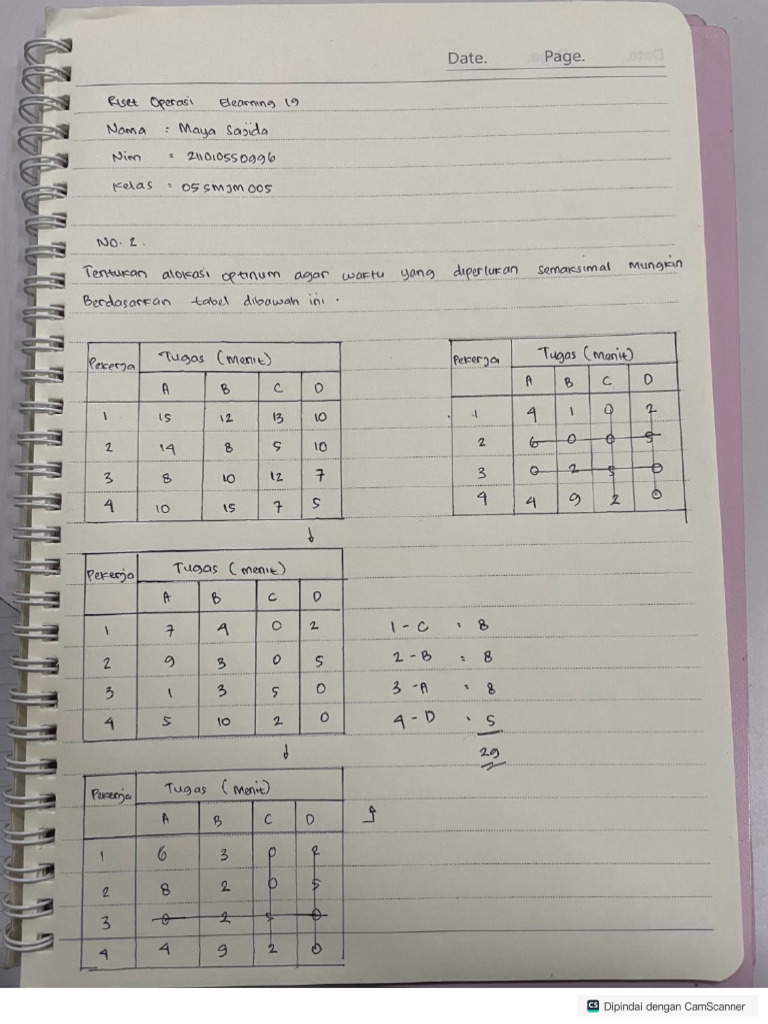 Date. Page.
Riset Operasi Elearning 19
Nama : Maya Sajida
Nim : 211010550996
Kelas : 05 SMJM 005
NO. 2.
Tentukan alokasi optimum agar waktu yang diperlukan semaksimal mungkin
Berdasarkan tabel dibawah ini.
Pekerja Tugas (menit)
A B C D
1 15 12 13 10
2 14 8 5 10
3 8 10 12 7
4 10 15 7 5
Pekerja Tugas (menit)
A B C D
1 4 1 0 2
2 6 0 0 5
3 0 2 5 0
4 4 9 2 0
Pekerja Tugas (menit)
A B C D
1 7 4 0 2
2 9 3 0 5
3 1 3 5 0
4 5 10 2 0
1 - C : 8
2 - B : 8
3 - A : 8
4 - D : 5
29
Pekerja Tugas (menit)
A B C D
1 6 3 0 2
2 8 2 0 5
3 0 2 5 0
4 4 9 2 0
CS Dipindai dengan CamScanner